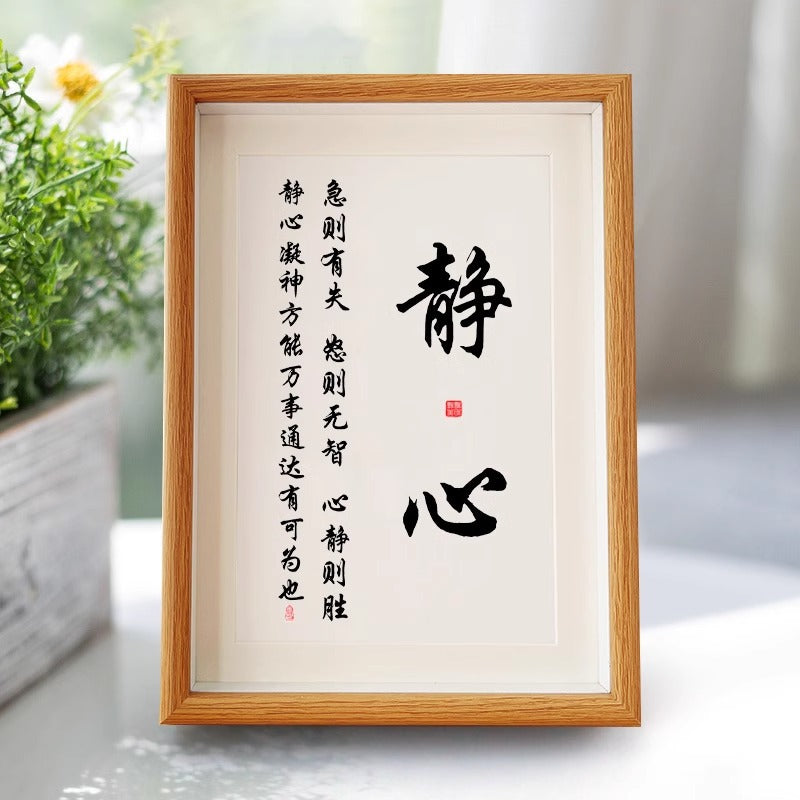 静心
急则有失 怒则无智 心静则胜
静心凝神方能万事通达有可为也